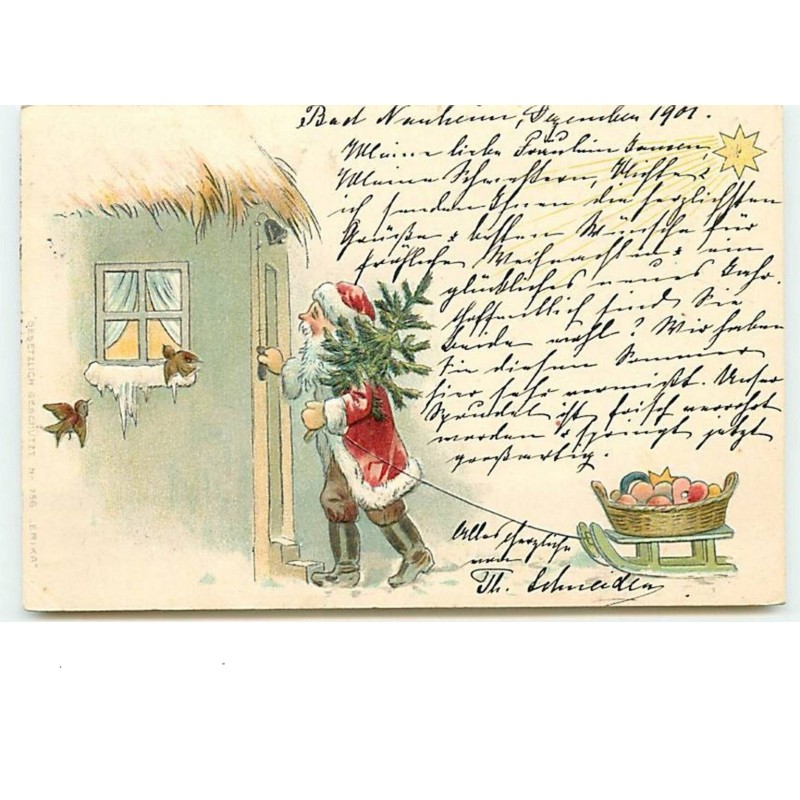 Bad Nauheim, Dezember 1901.
Meine liebe Fräulein Jansen,
Meine Schwestern, Nichte &
ich senden Ihnen die herzlichsten
Grüße & besten Wünsche für
fröhliche Weihnachten & ein
glückliches neues Jahr.
Hoffentlich sind Sie
beide wohl? Wir haben
Sie diesen Sommer
hier sehr vermißt. Unser
Sprudel ist frisch verrohrt
worden & springt jetzt
großartig.
Alles herzliche
von
Th. Schneider
"GESETZLICH GESCHÜTZT No 756 "ERIKA"